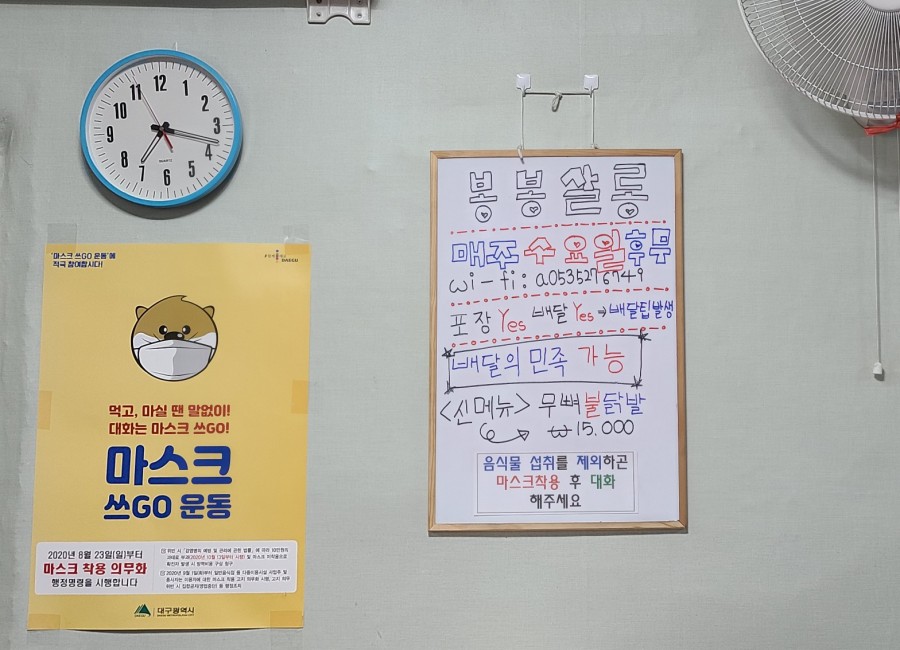 12
1
2
3
4
5
6
7
8
9
10
11
QUARTZ
'마스크 쓰GO 운동'에
적극 참여합시다!
DAEGU
먹고, 마실 땐 말없이!
대화는 마스크 쓰GO!
마스크
쓰GO 운동
2020년 8월 23일(일)부터
마스크 착용 의무화
행정명령을 시행합니다
대구광역시
봉봉살롱
매주 수요일 휴무
wi-fi: a0535276749
포장 Yes 배달 Yes → 배달팁발생
배달의 민족 가능
<신메뉴> 무뼈불닭발
₩15.000
음식물 섭취를 제외하곤
마스크착용 후 대화
해주세요